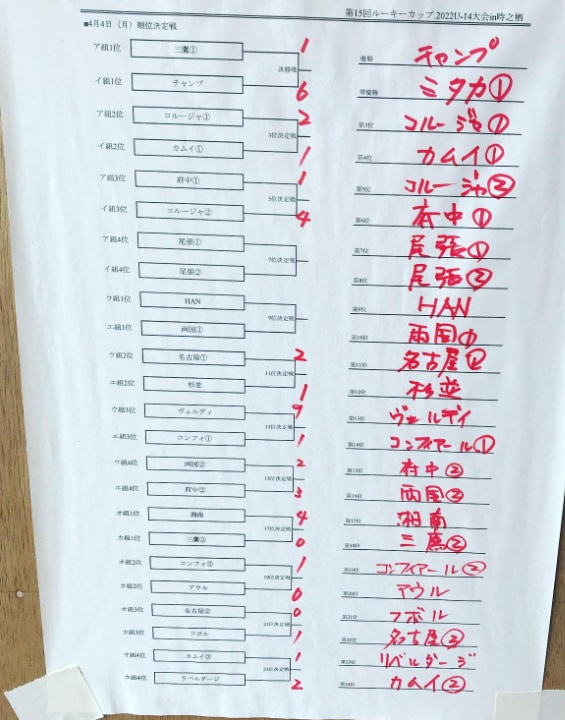 第15回ルーキーカップ 2022U-14大会in時之栖
■4月4日（月）順位決定戦
ア組1位 三鷹① 1 優勝 チャンプ
決勝戦
イ組1位 チャンプ 6 準優勝 ミタカ①
ア組2位 コルージャ① 2 第3位 コルージャ①
3位決定戦
イ組2位 カムイ① 1 第4位 カムイ①
ア組3位 府中① 1 第5位 コルージャ②
5位決定戦
イ組3位 コルージャ② 4 第6位 府中①
ア組4位 尾張① 第7位 尾張①
7位決定戦
イ組4位 尾張② 第8位 尾張②
ウ組1位 HAN 第9位 HAN
9位決定戦
エ組1位 両国① 第10位 両国①
ウ組2位 名古屋① 2 第11位 名古屋①
11位決定戦
エ組2位 杉並 1 第12位 杉並
ウ組3位 ヴェルディ 9 第13位 ヴェルディ
13位決定戦
エ組3位 コンフィ① 1 第14位 コンフィアール①
ウ組4位 両国② 2 第15位 府中②
15位決定戦
エ組4位 府中② 3 第16位 両国②
オ組1位 湘南 4 第17位 湘南
17位決定戦
カ組1位 三鷹② 0 第18位 三鷹②
オ組2位 コンフィ② 1 第19位 コンフィアール②
19位決定戦
カ組2位 アウル 0 第20位 アウル
オ組3位 名古屋② 0 第21位 フボル
21位決定戦
カ組3位 フボル 1 第22位 名古屋②
オ組4位 カムイ② 1 第23位 リベルダージ
23位決定戦
カ組4位 リベルダージ 2 第24位 カムイ②